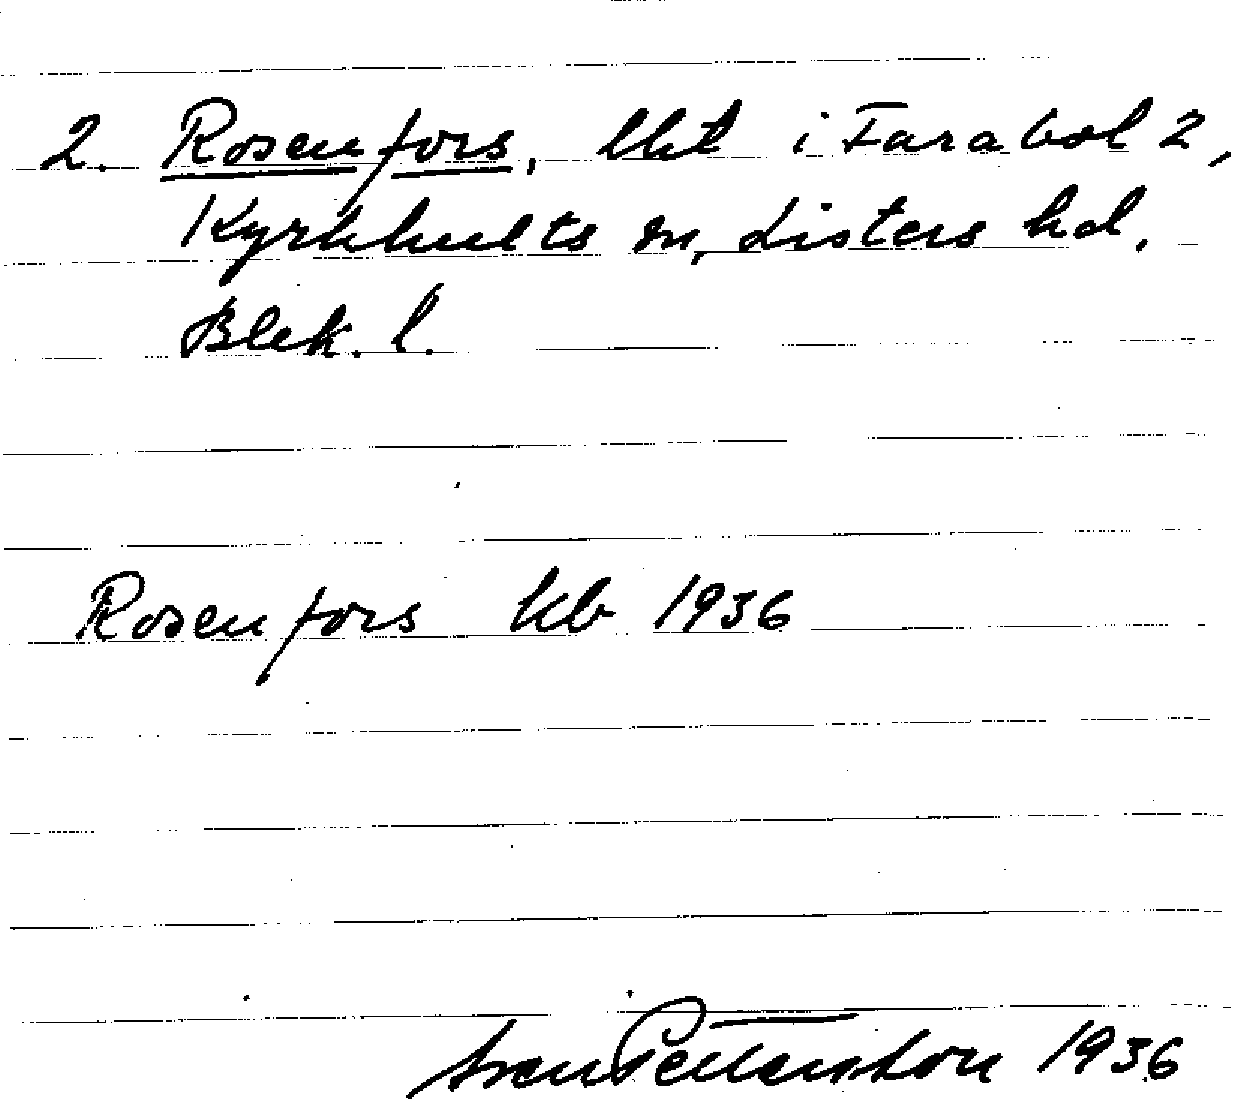 2. Rosenfors, lht i Farabol 2,
Kyrkhults sn, Listers hd.
Blek. l.
Rosenfors kb 1936
Sven Pettersson 1936